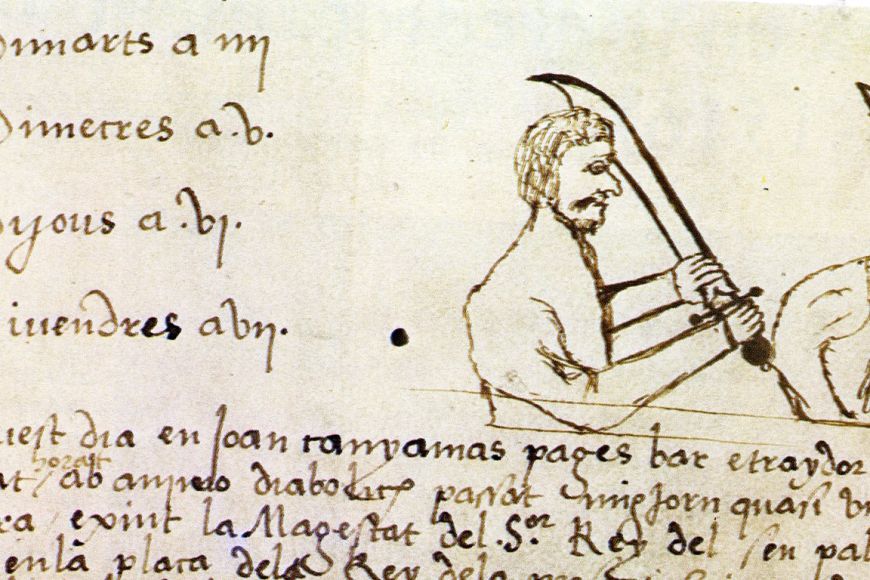 Dimarts a iiij
Dimecres a.v.
Dijous a .vj.
Divendres a vij.
uest dia en Joan canyamas pages bar etraydor
at horat ab animo diabolich passat migjorn quasi vn
ra exint la Magestat del .S.or Rey del seu pal
en la plaça del Rey dela